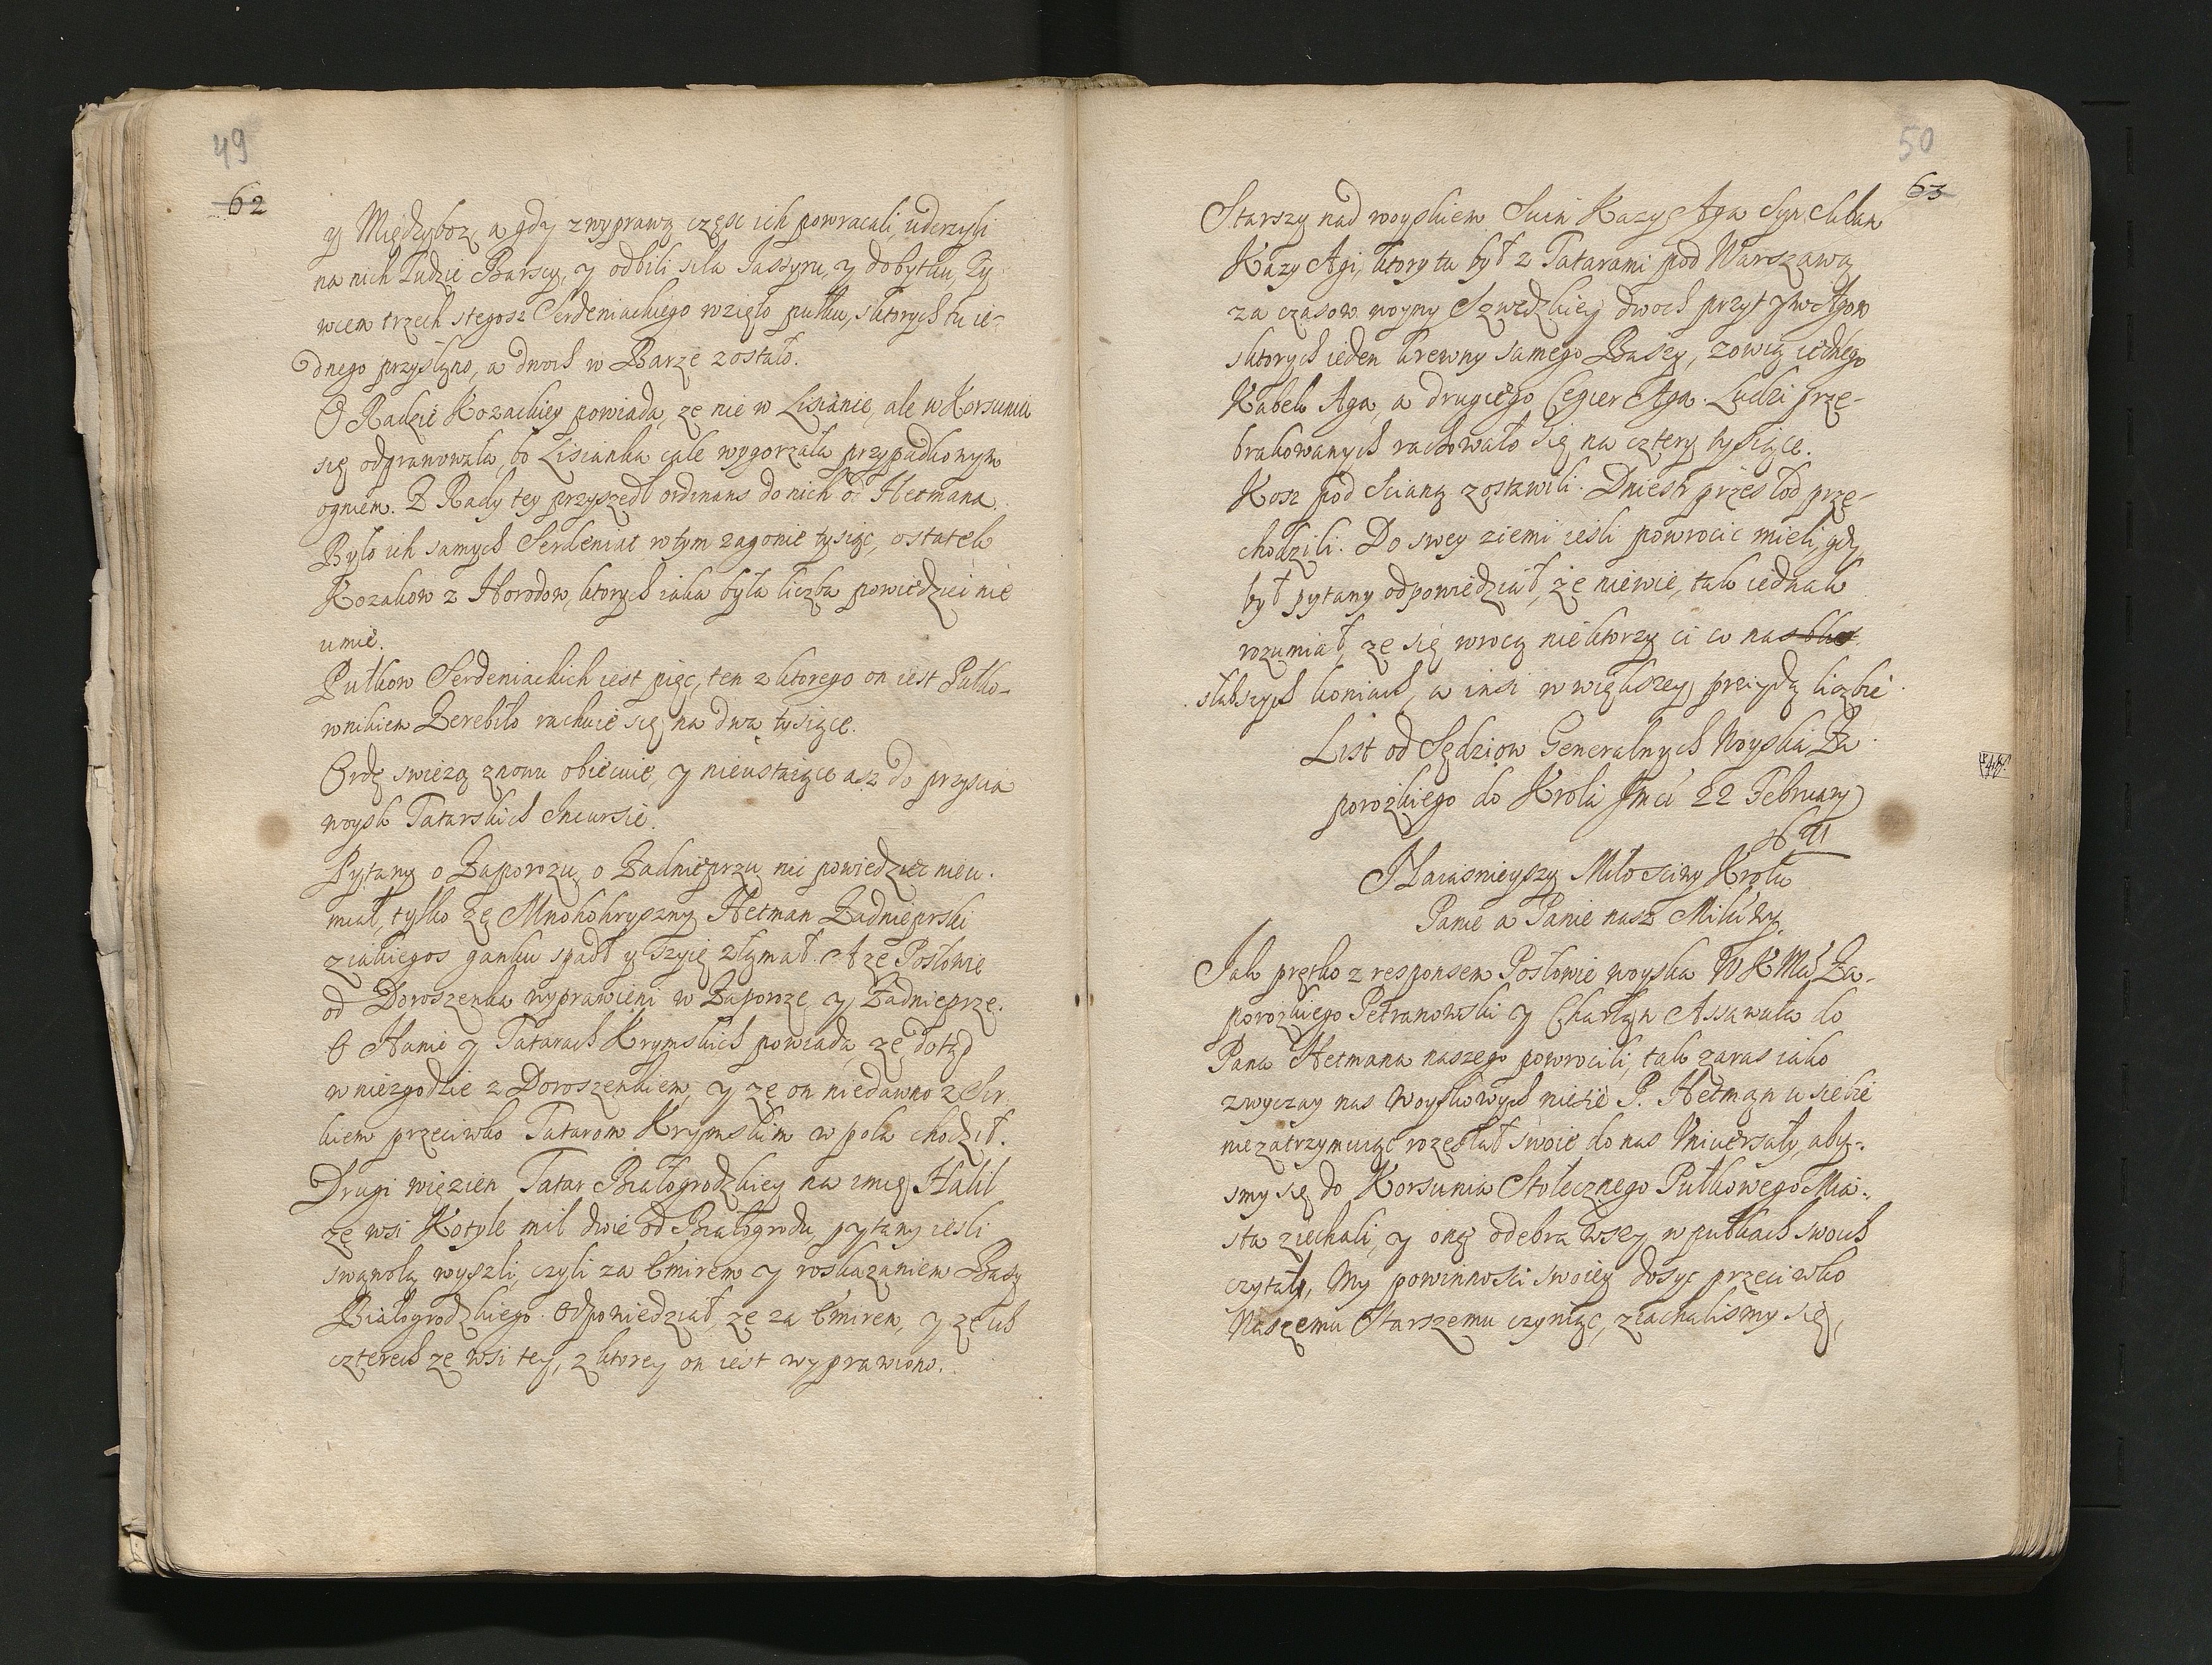 49
62
y Międzyboz, a gdy z wyprawą częsc ich powracali, uderzyli
na nich Ludzie Barscy, y odbili siła Jassyru, y dobytku, Zy
wcem trzech stegosz Serdeniackiego wzięło pułku, sktorych tu ie-
dnego przysłano, a dwoch w Barze zostało.
O Radzie Kozackiey powiada, ze nie w Lisiance, ale w Korsuniu
się odprawowała, bo Lisianka cale wygorzała przypadkowym
ogniem. Z Rady tey przyszedł ordinans do nich od Hetmana
Było ich samych Serdeniat w tym zagonie tysiąc, ostatek
Kozakow z Horodow, ktorych iaka była liczba powiedziec nie
umie.
Pułkow Serdeniackich iest pięc, ten z ktorego on iest Pułko-
wnikiem Zerebiło rachuie się na dwa tysiące.
Ordę swiezą znowu obiecuie, y nieustaiące asz do przyscia
woysk Tatarskich Incursie.
Pytany o Zaporozu, o Zadnieprzu nic powiedziec nieu-
miał, tylko ze Mnohohryszny Hetman Zadnieprski
z iakiegos ganku spadł y szyię złamał. A ze Posłowie
od Doroszenka wyprawieni w Zaporoze, y Zadnieprze.
O Hanie y Tatarach Krymskich powiada, ze dotąd
w niezgodzie z Doroszenkiem, y ze on niedawno z Sir
kiem przeciwko Tatarom Krymskim w pola chodził.
Drugi więzien Tatar Białogrodzkiey na imię Halil
ze wsi Kotyle mil dwie od Białogrodu, pytany iesli
swawolą wyszli, czyli za Emirem y roskazaniem Baszy
Białogrodzkiego. Odpowiedział, ze za Emirem, y ze ich
czterech ze wsi tey, z ktorey on iest wyprawiono.
50
63
Starszy nad woyskiem Suin Kazy Aga Syn
Kazy Agi, ktory tu był z Tatarami pod Warszawą
za czasow woyny Szwedzkiey dwoch przytym Agow
sktorych ieden krewny samego Baszy, zowią iednego
Kabek Aga, a drugiego Cegier Aga. Ludzi prze-
brakowanych rachowało się na cztery tysiące.
Kosz pod Scianą zostawili. Dniestr przes lod prze-
chodzili. Do swey ziemi iesli powrocic mieli, gdy
był pytany odpowiedział, ze niewie, tak iednak
rozumiał, ze się wrocą niektorzy ci co na
słabszych koniach, a insi w większey przyidą liczbie
List od Sędziow Generalnych Woyska Za
porozkiego do Krola Jmci 22 February
1671
Naiasnieyszy Miłosciwy Krolu
Panie a Panie nasz Miłciwy.
Jak prętko z responsem Posłowie woyska WKMsci Za-
porozkiego Petranowski y Charlyn Assawuła do
Pana Hetmana naszego powrocili, tak zaras iako
zwyczay nas Woyskowych niesie P. Hetman u siebie
nie zatrzymuiąc rozesłał swoie do nas Uniwersały, aby-
smy się do Korsunia Stołecznego Pułkowego Mia-
sta ziechali, y onę odebrawszy w pułkach swoich
czytali, My powinnosci swoiey dosyc przeciwko
Naszemu Starszemu czyniąc, ziachalismy się,